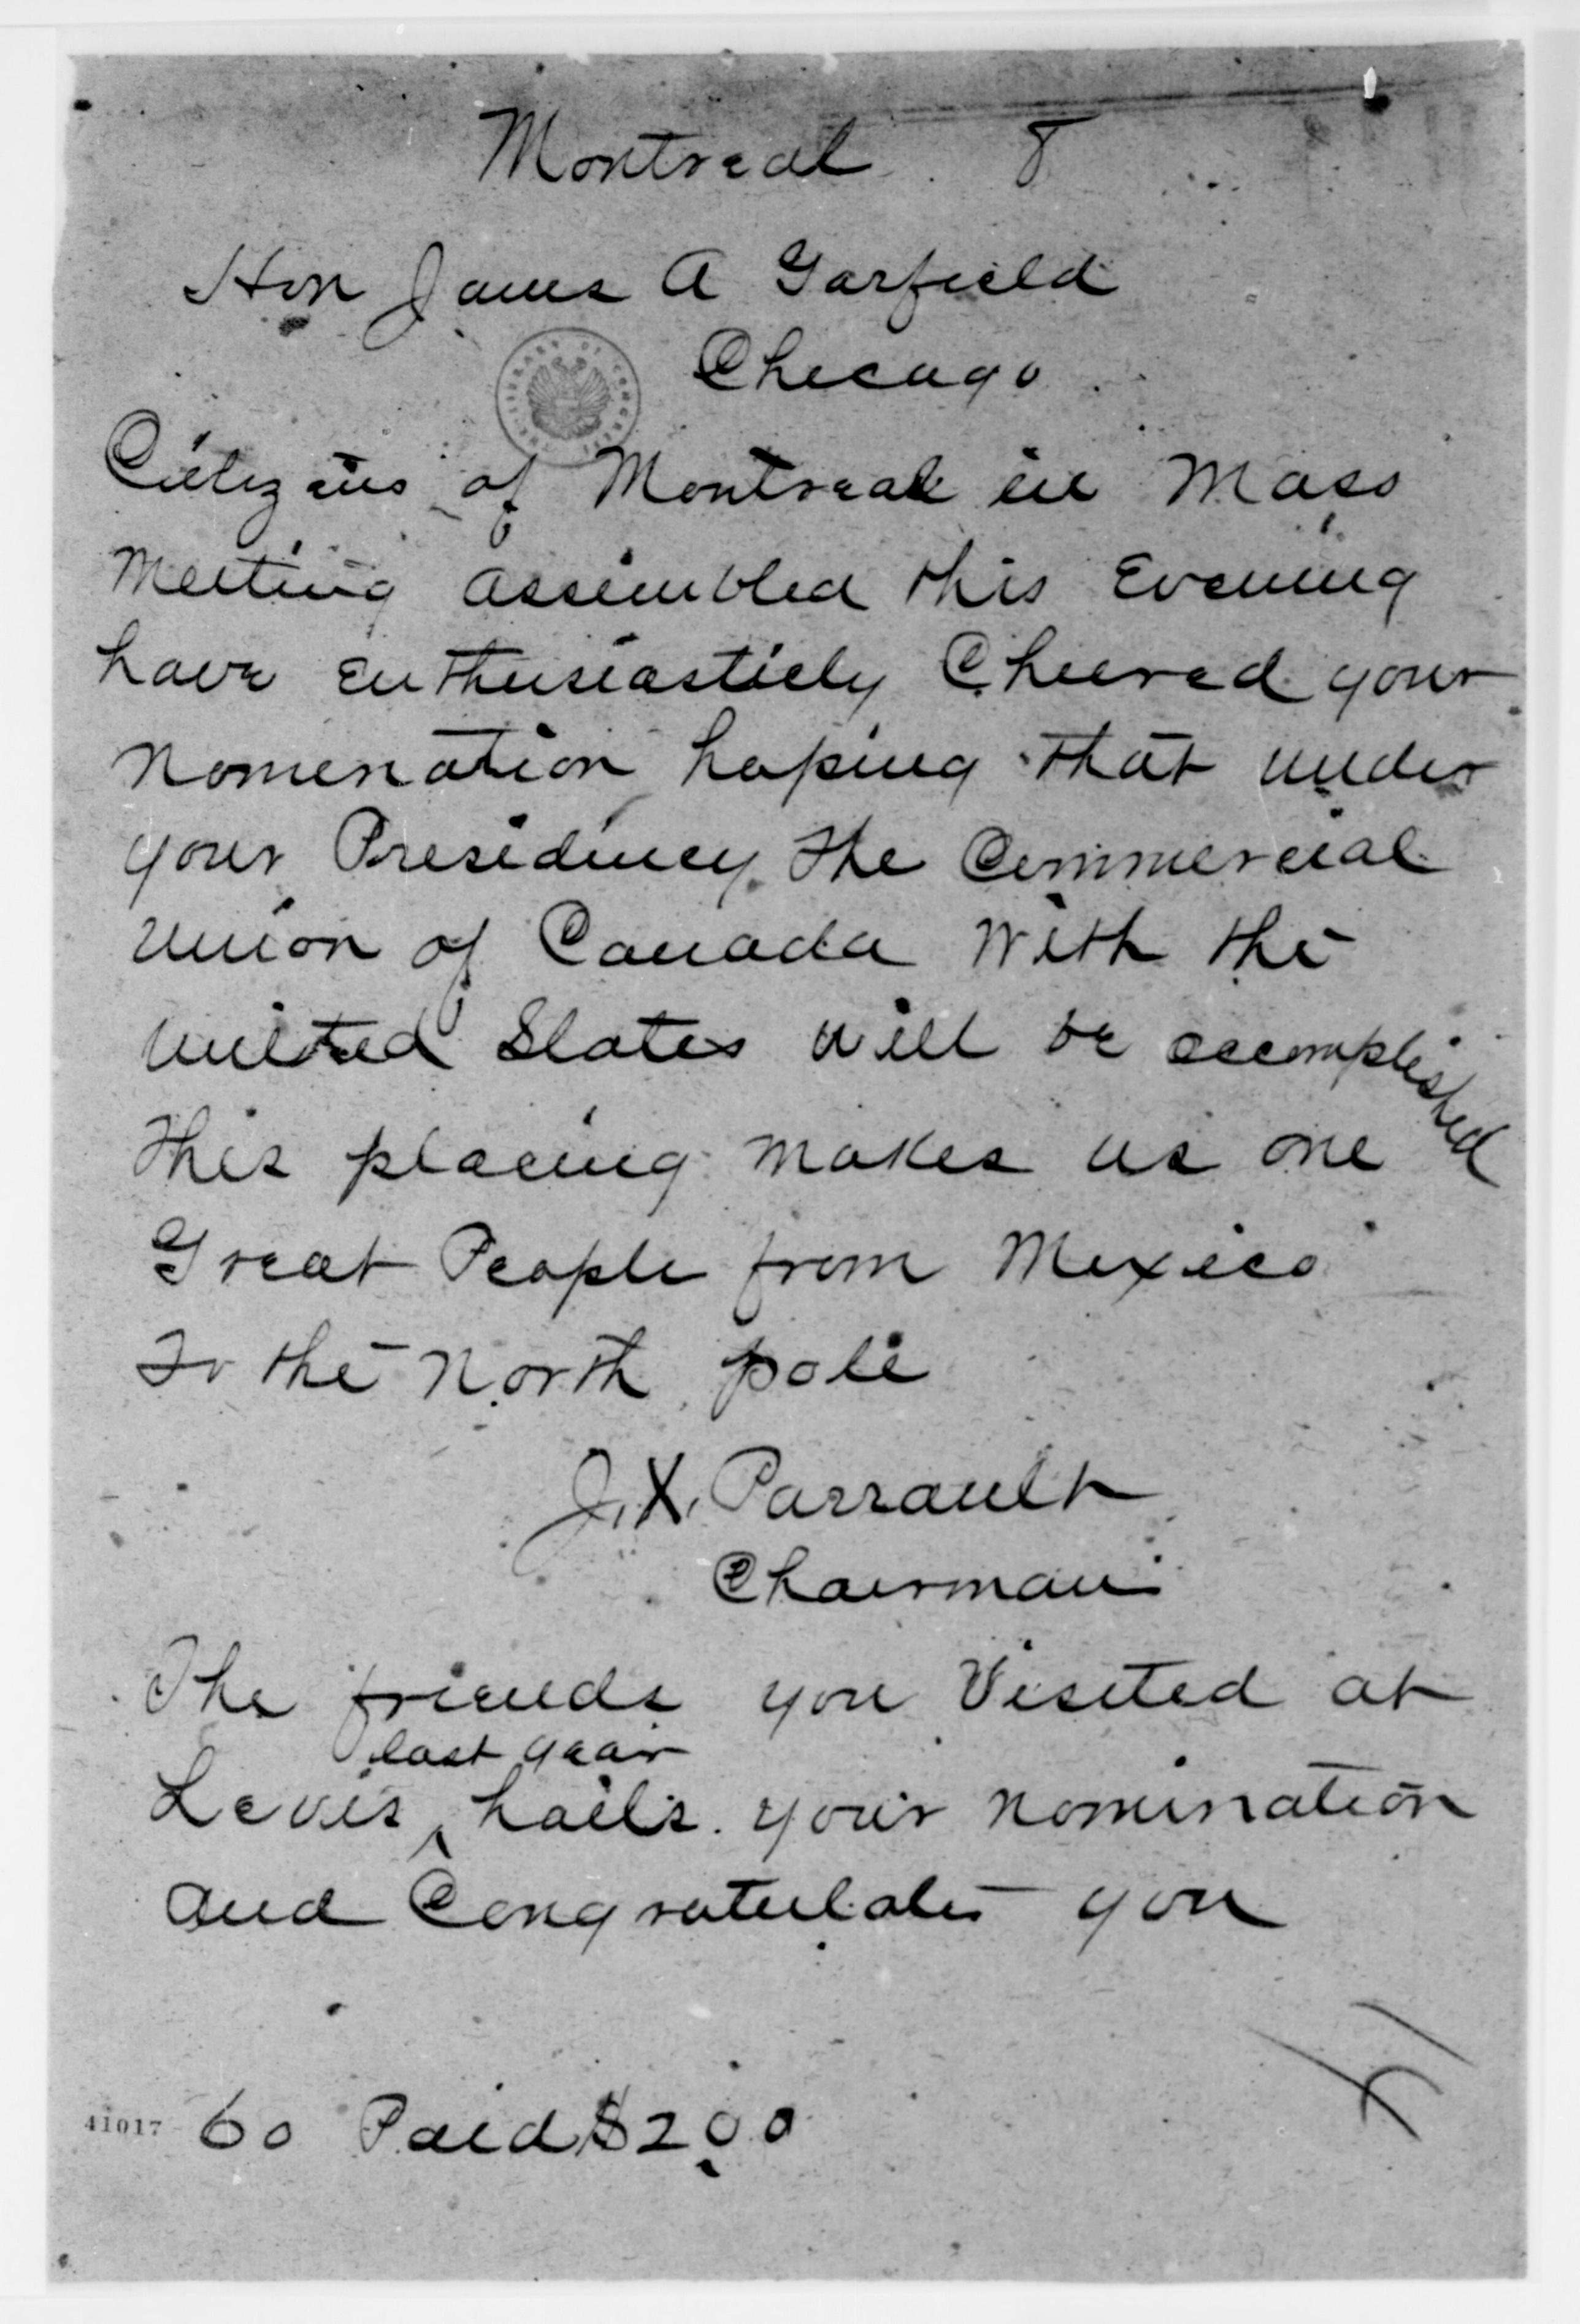 Montreal 8
Hon James A Garfield
Chicago
Citizens of Montreal in Mass
Meeting assembled this Evening
have enthusiasticly Cheered your
nomination hoping that under
your Presidency the Commercial
Union of Canada with the
United States will be accomplished
this placing makes us one
Great People from Mexico
To the North pole
J. X. Parrault
Chairman
The friends you Visited at
last year
Levis ^ hails your nomination
and Congratulates you
41017 60 Paid $200